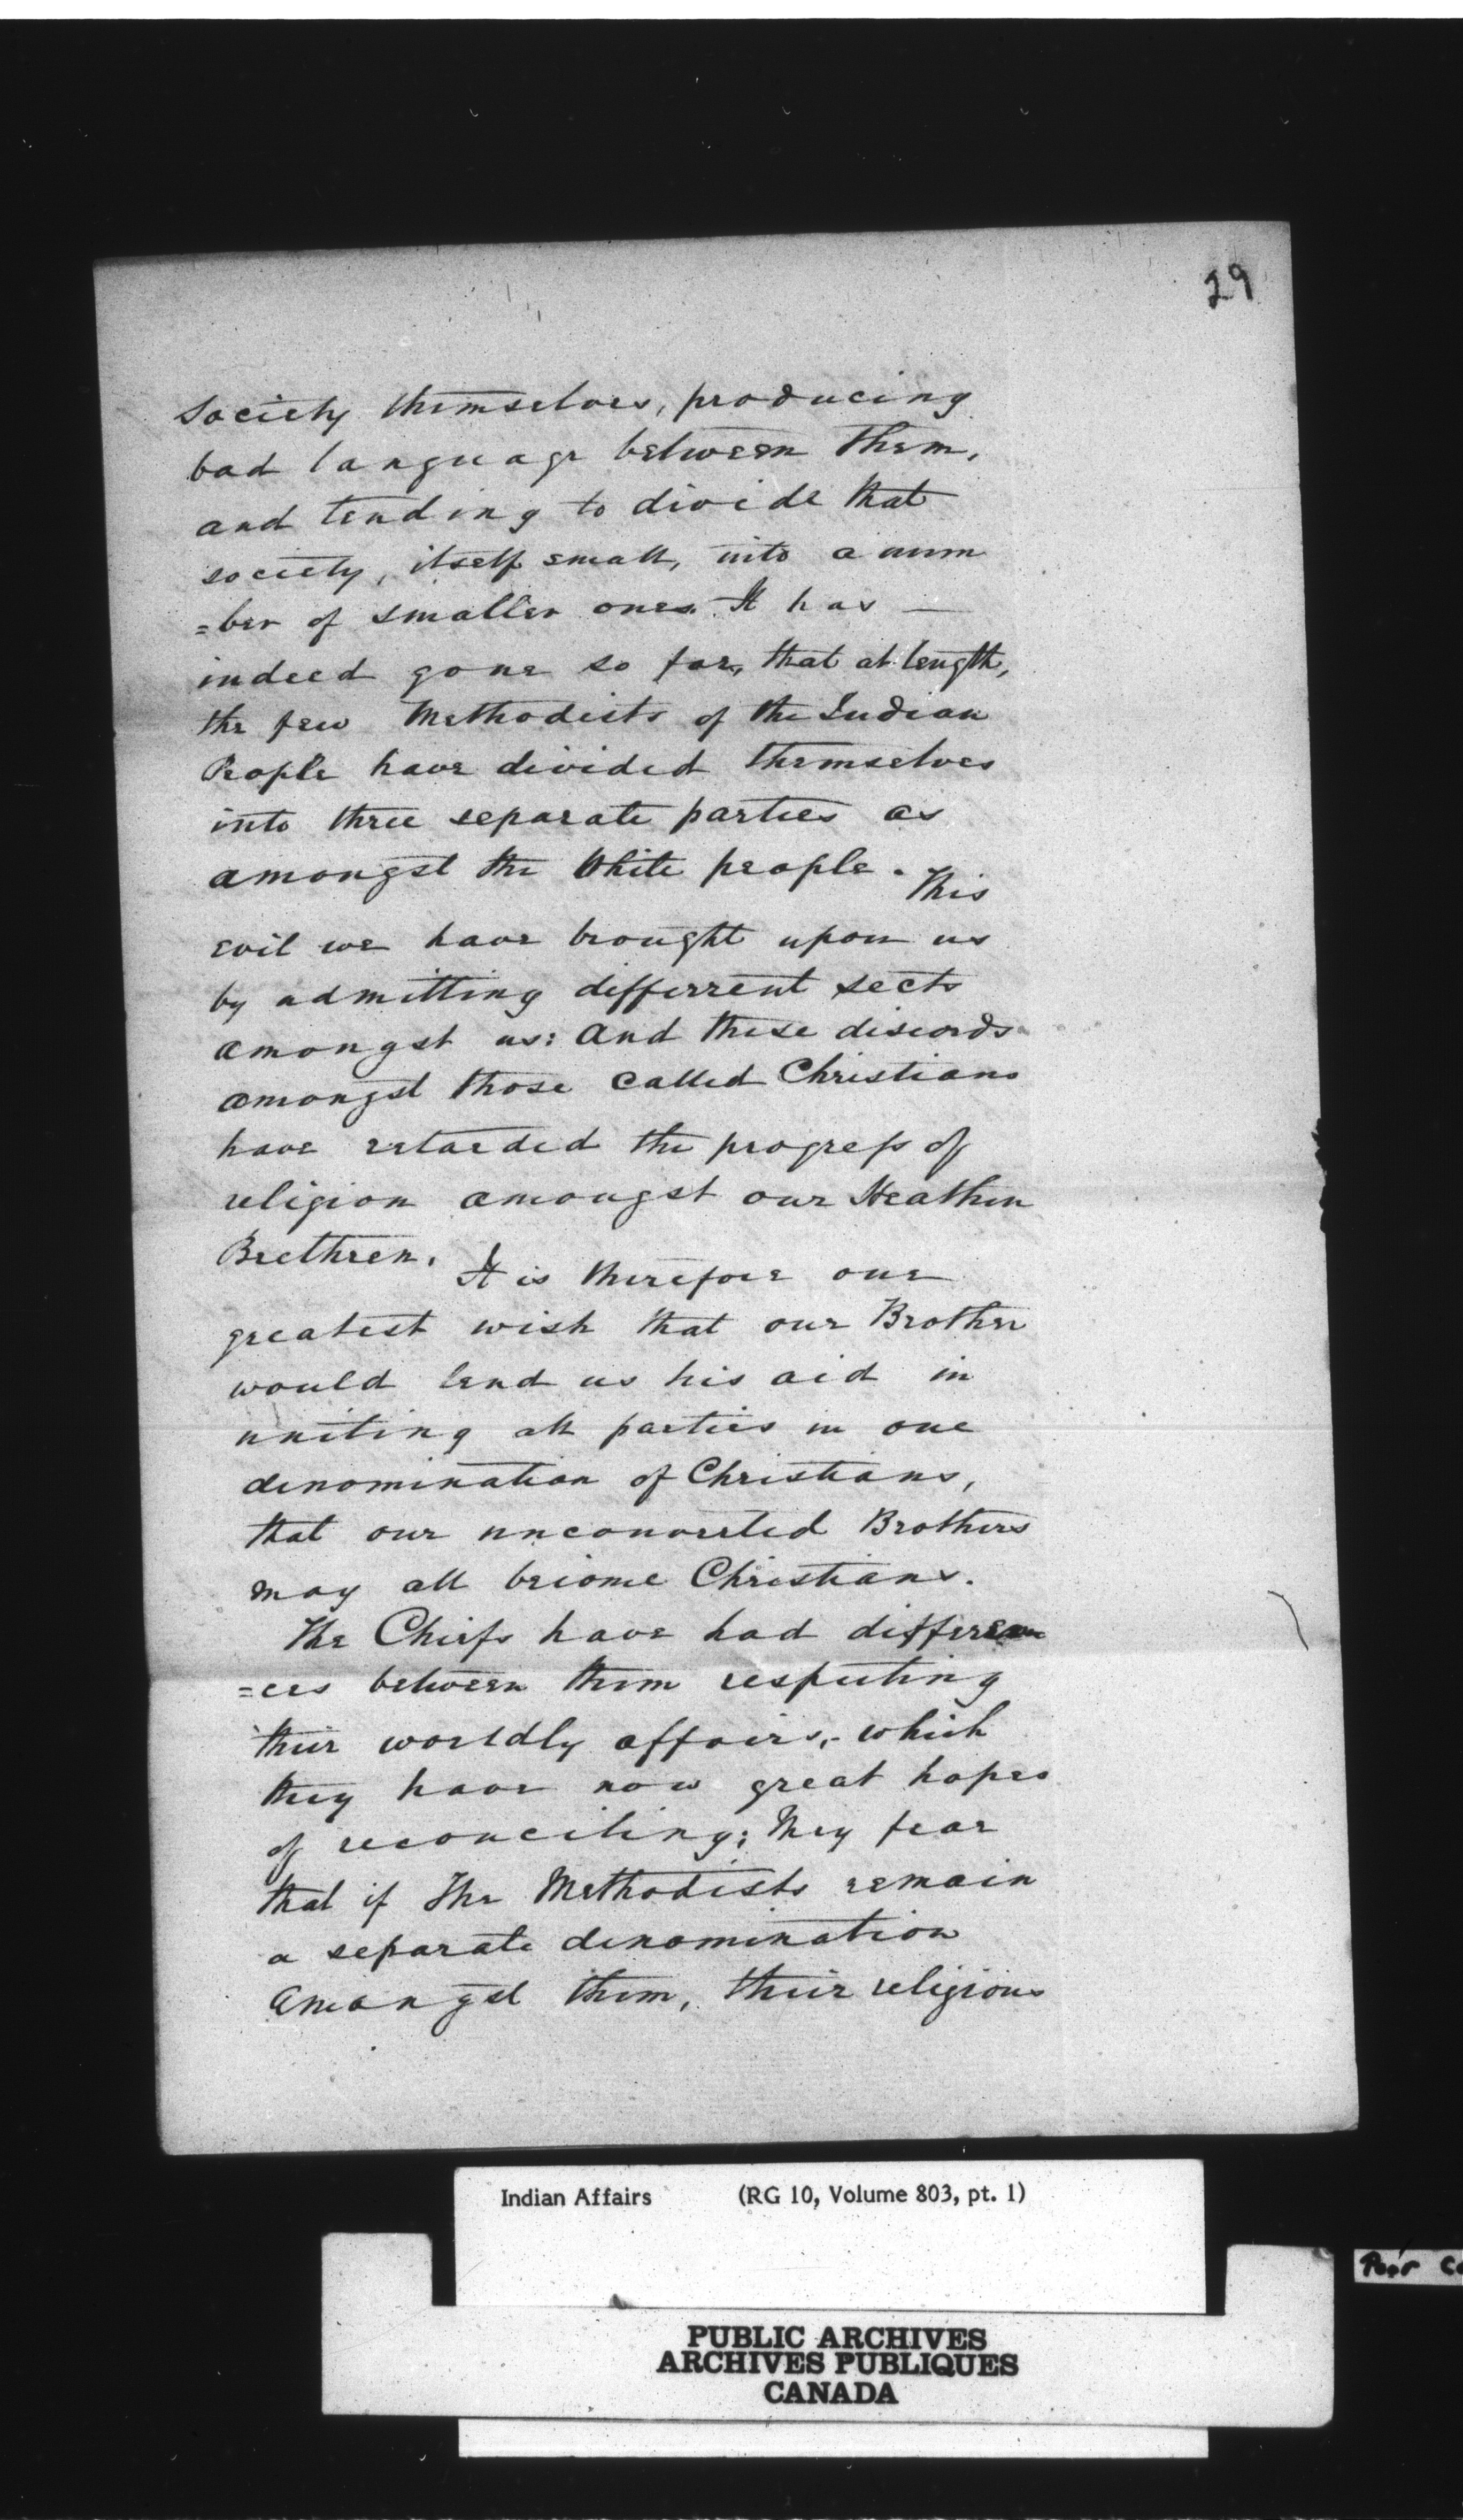 29
Society themselves, producing
bad language between them,
and tending to divide that
society, itself small, into a num
=ber of smaller ones. It has —
indeed gone so far, that at length,
the few Methodists of the Indian
People have divided themselves
into three separate parties as
amongst the White people. This
evil we have brought upon us
by admitting differrent sects
amongst us: And these discords
amongst those Called Christians
have retarded the progress of
religion amongst our Heathen
Brethren. It is therefore our
greatest wish that our Brother
would lend us his aid in
uniting all parties in one
denomination of Christians,
that our unconverted Brothers
may all become Christians.
The Chiefs have had differen
=ces between them respecting
their worldly affairs, which
they have now great hopes
of reconciling; They fear
that if The Methodists remain
a separate denomination
Amongst them, their religious
Indian Affairs (RG 10, Volume 803, pt. 1)
PUBLIC ARCHIVES
ARCHIVES PUBLIQUES
CANADA
Poor